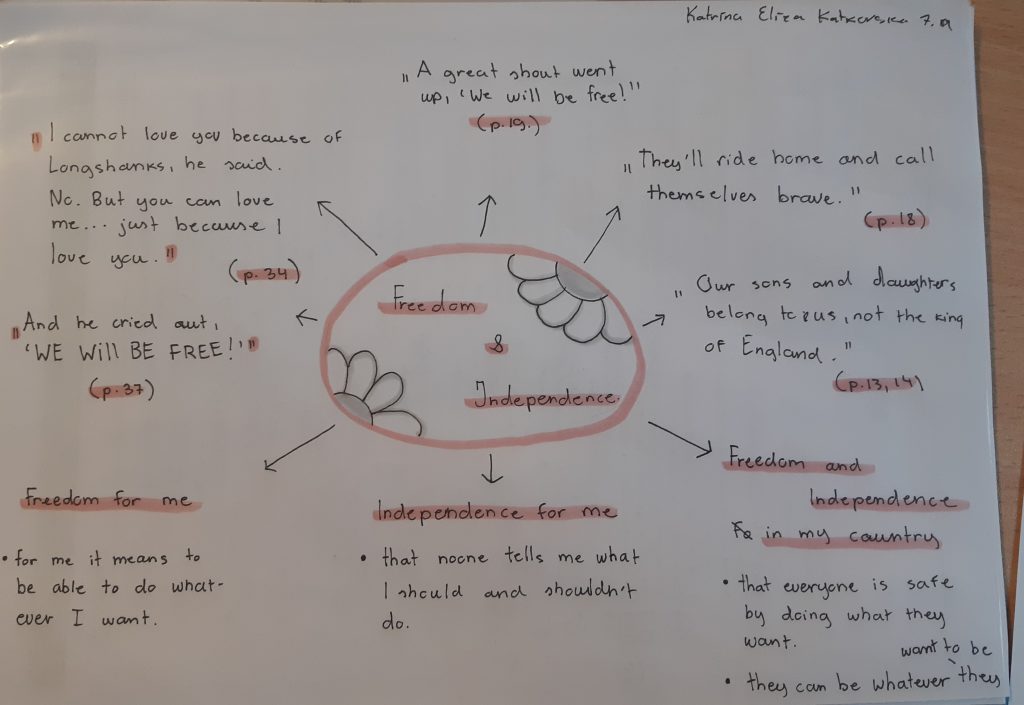 Katrina Eliza Katkovska 7.a
„A great shout went
up, 'We will be free!'"
(p.19.)
"I cannot love you because of
Longshanks, he said.
No. But you can love
me... just because I
love you."
(p.34)
„They'll ride home and call
themselves brave."
(p.18)
"And he cried out,
'WE WILL BE FREE!'"
(p.37)
Freedom
&
Independence.
„Our sons and daughters
belong to us, not the king
of England."
(p.13,14)
Freedom for me
• for me it means to
be able to do what-
ever I want.
Independence for me
• that noone tells me what
I should and shouldn't
do.
Freedom and
Independence
in my country
• that everyone is safe
by doing what they
want.
want to be
• they can be whatever they